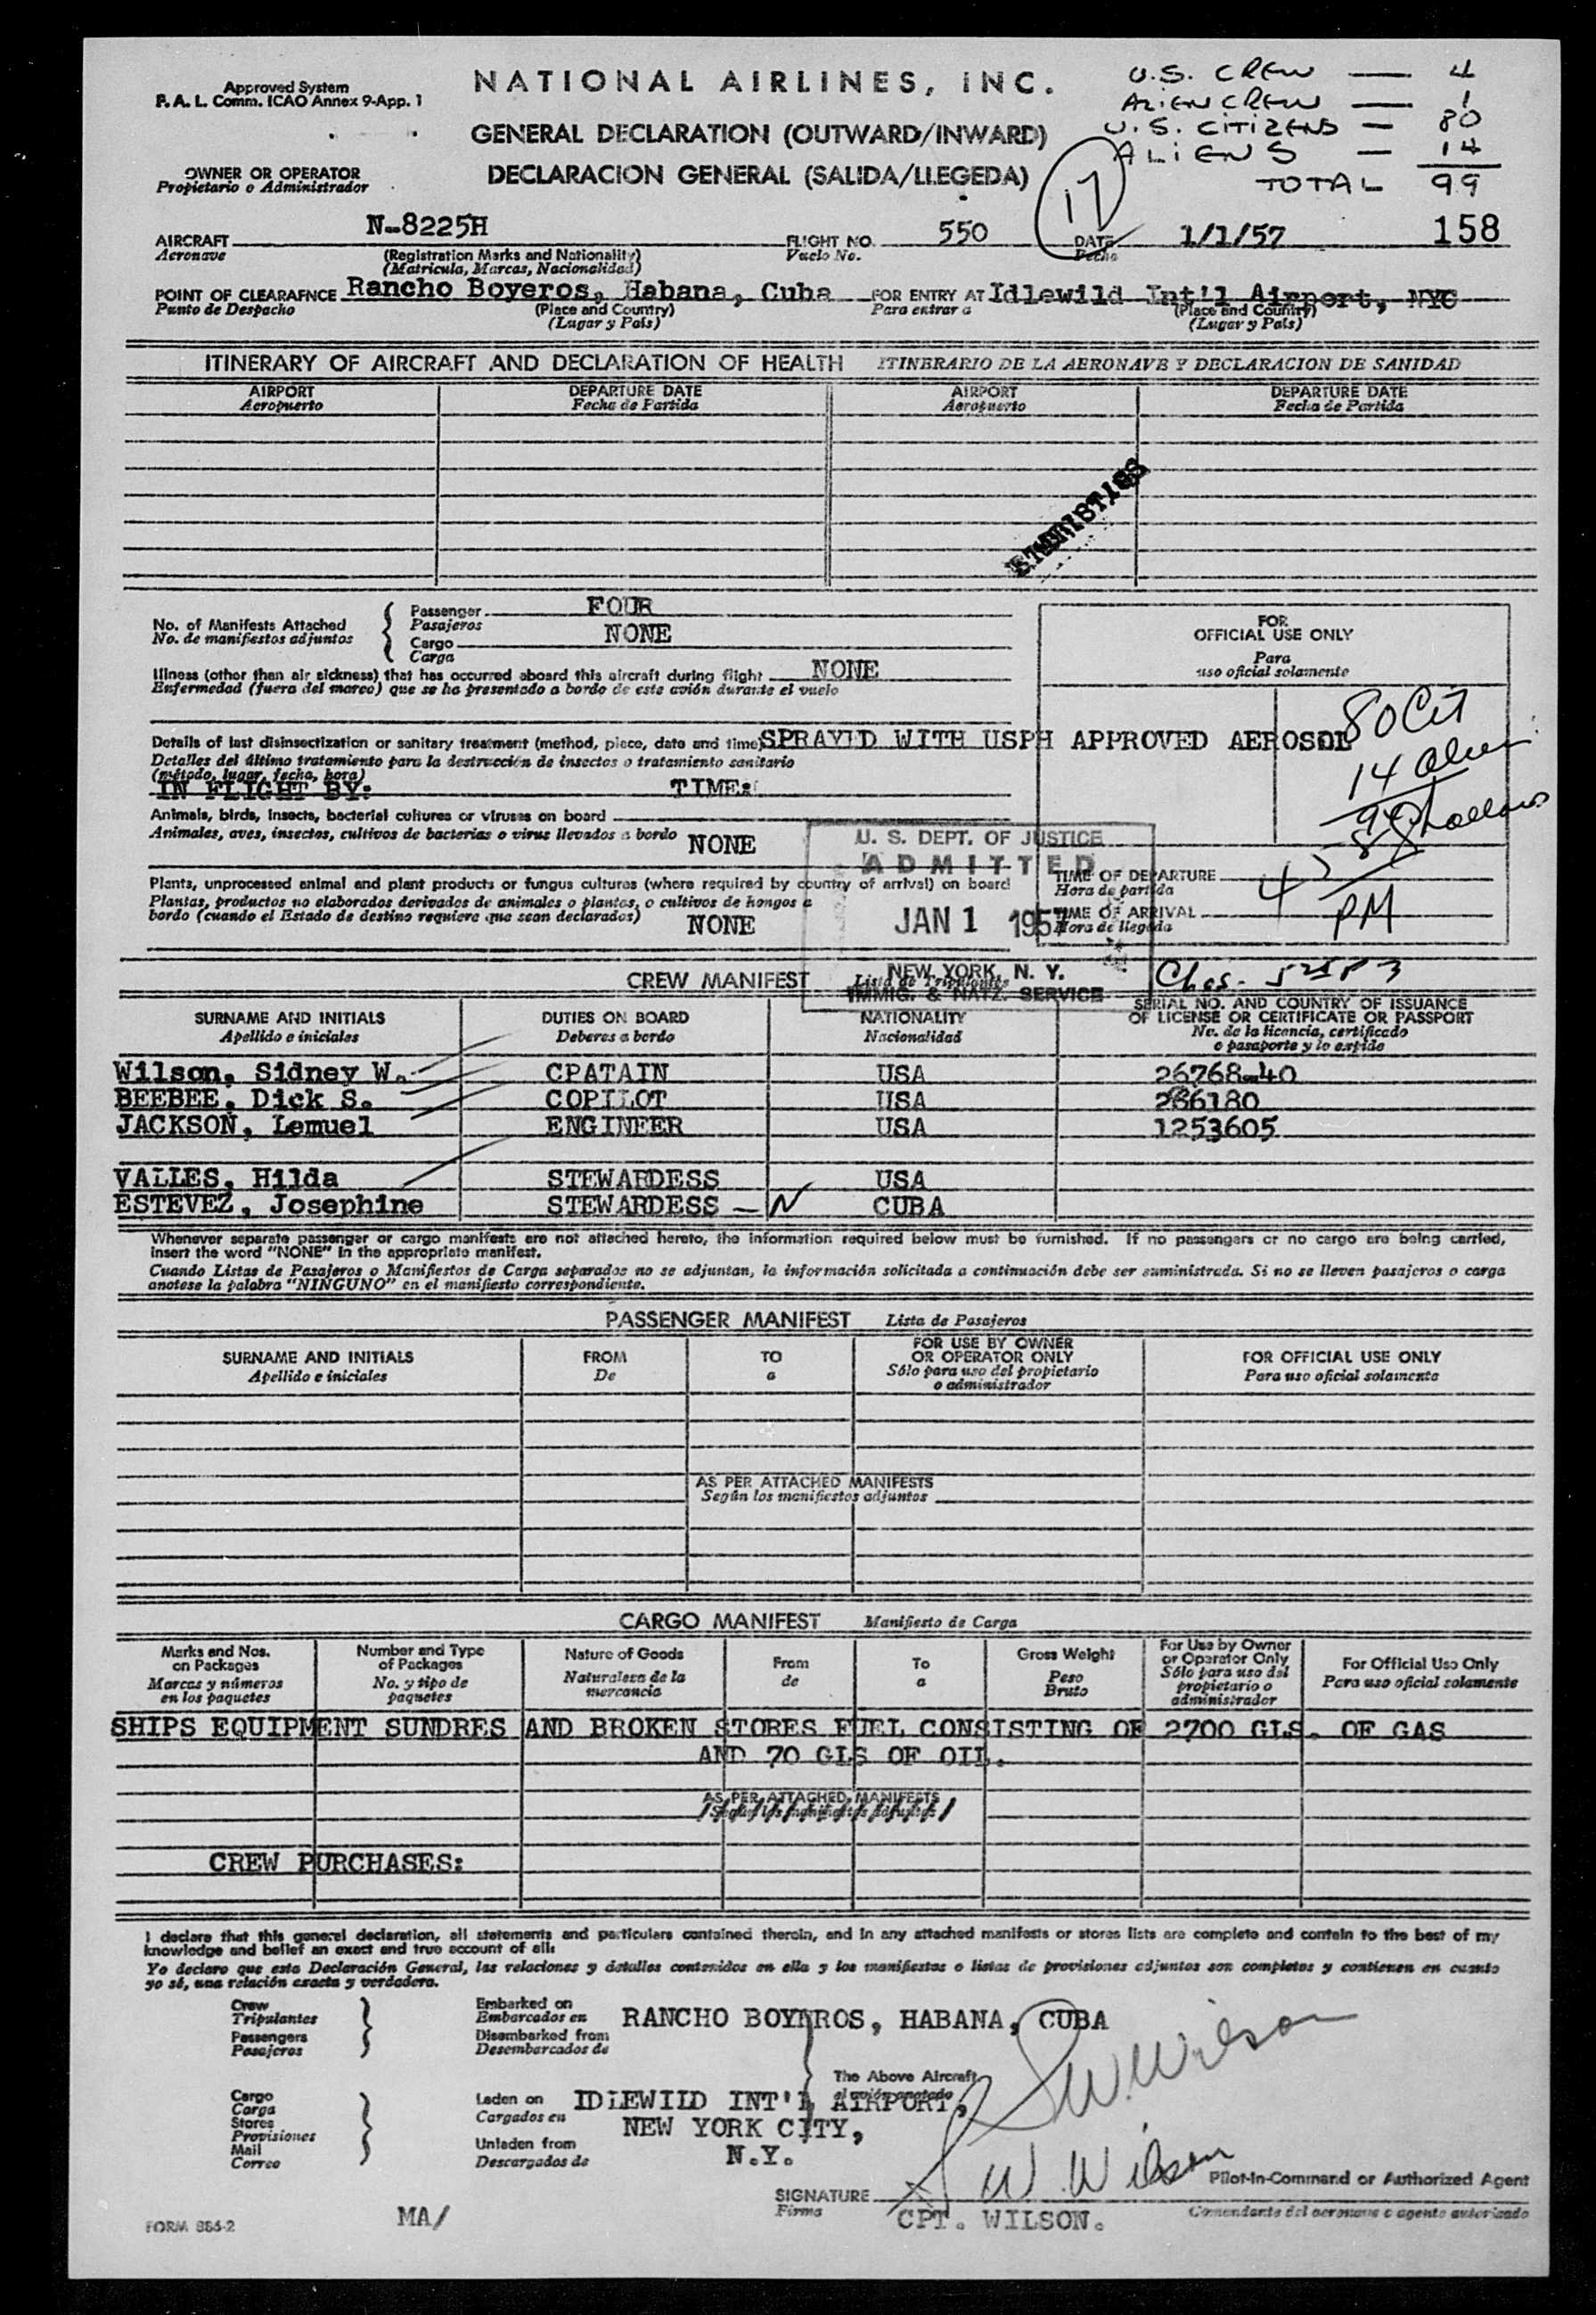 Approved System
F. A. L. Comm. ICAO Annex 9-App. 1
NATIONAL AIRLINES, INC.
GENERAL DECLARATION (OUTWARD/INWARD)
DECLARACION GENERAL (SALIDA/LLEGEDA)
U.S. CREW — 4
ALIEN CREW — 1
U.S. CITIZENS — 80
ALIENS — 14
TOTAL 99
17
OWNER OR OPERATOR
Propietario o Administrador
AIRCRAFT N-8225H FLIGHT NO. 550 DATE 1/1/57 158
Aeronave (Registration Marks and Nationality) Vuelo No. Fecha
(Matricula, Marcas, Nacionalidad)
POINT OF CLEARAFNCE Rancho Boyeros, Habana, Cuba FOR ENTRY AT Idlewild Int'l Airport, NYC
Punto de Despacho (Place and Country) Para entrar a (Place and Country)
(Lugar y País) (Lugar y País)
ITINERARY OF AIRCRAFT AND DECLARATION OF HEALTH ITINERARIO DE LA AERONAVE Y DECLARACION DE SANIDAD
AIRPORT DEPARTURE DATE AIRPORT DEPARTURE DATE
Aeropuerto Fecha de Partida Aeropuerto Fecha de Partida
No. of Manifests Attached Passenger FOUR
No. de manifiestos adjuntos Pasajeros
Cargo NONE
Carga
Illness (other than air sickness) that has occurred aboard this aircraft during flight NONE
Enfermedad (fuera del mareo) que se ha presentado a bordo de este avión durante el vuelo
FOR
OFFICIAL USE ONLY
Para
uso oficial solamente
80 Cit
14 alien
94
Details of last disinsectization or sanitary treatment (method, place, date and time) SPRAYED WITH USPH APPROVED AEROSOL
Detalles del último tratamiento para la destrucción de insectos o tratamiento sanitario
(método, lugar, fecha, hora)
IN FLIGHT BY: TIME:
Animals, birds, insects, bacterial cultures or viruses on board
Animales, aves, insectos, cultivos de bacterias o virus llevados a bordo NONE
Plants, unprocessed animal and plant products or fungus cultures (where required by country of arrival) on board
Plantas, productos no elaborados derivados de animales o plantas, o cultivos de hongos a
bordo (cuando el Estado de destino requiere que sean declarados) NONE
U. S. DEPT. OF JUSTICE
ADMITTED
JAN 1 1957
NEW YORK, N. Y.
IMMIG. & NATZ. SERVICE
TIME OF DEPARTURE
Hora de partida
TIME OF ARRIVAL
Hora de llegada
PM
CREW MANIFEST Lista de Tripulantes
SURNAME AND INITIALS DUTIES ON BOARD NATIONALITY SERIAL NO. AND COUNTRY OF ISSUANCE
OF LICENSE OR CERTIFICATE OR PASSPORT
Apellido e iniciales Deberes a bordo Nacionalidad No. de la licencia, certificado
o pasaporte y lo expide
Wilson, Sidney W. CPATAIN USA 26768-40
BEEBEE, Dick S. COPILOT USA 266180
JACKSON, Lemuel ENGINEER USA 1253605
VALLES, Hilda STEWARDESS USA
ESTEVEZ, Josephine STEWARDESS — N CUBA
Whenever separate passenger or cargo manifests are not attached hereto, the information required below must be furnished. If no passengers or no cargo are being carried,
insert the word "NONE" in the appropriate manifest.
Cuando Listas de Pasajeros o Manifiestos de Carga separados no se adjuntan, la información solicitada a continuación debe ser suministrada. Si no se lleven pasajeros o carga
anotese la palabra "NINGUNO" en el manifiesto correspondiente.
PASSENGER MANIFEST Lista de Pasajeros
SURNAME AND INITIALS FROM TO FOR USE BY OWNER
OR OPERATOR ONLY FOR OFFICIAL USE ONLY
Apellido e iniciales De a Sólo para uso del propietario
o administrador Para uso oficial solamente
AS PER ATTACHED MANIFESTS
Según los manifiestos adjuntos
CARGO MANIFEST Manifiesto de Carga
Marks and Nos.
on Packages
Marcas y números
en los paquetes
Number and Type
of Packages
No. y tipo de
paquetes
Nature of Goods
Naturaleza de la
mercancia
From
de
To
a
Gross Weight
Peso
Bruto
For Use by Owner
or Operator Only
Sólo para uso del
propietario o
administrador
For Official Use Only
Para uso oficial solamente
SHIPS EQUIPMENT SUNDRES AND BROKEN STORES FUEL CONSISTING OF 2700 GLS. OF GAS
AND 70 GLS OF OIL.
AS PER ATTACHED MANIFESTS
CREW PURCHASES:
I declare that this general declaration, all statements and particulars contained therein, and in any attached manifests or stores lists are complete and contain to the best of my
knowledge and belief an exact and true account of all:
Yo declaro que esta Declaración General, las relaciones y detalles contenidos en ella y los manifiestos o listas de provisiones adjuntos son completos y contienen en cuanto
yo sé, una relación exacta y verdadera.
Crew
Tripulantes
Passengers
Pasajeros
Embarked on
Embarcados en RANCHO BOYEROS, HABANA, CUBA
Disembarked from
Desembarcados de
The Above Aircraft
el avión anotado
Cargo
Carga
Stores
Provisiones
Mail
Correo
Laden on IDLEWILD INT'L AIRPORT,
Cargados en NEW YORK CITY,
Unladen from N.Y.
Descargados de
S W Wilson
S W Wilson
SIGNATURE Pilot-In-Command or Authorized Agent
Firma CPT. WILSON. Comandante del aeronave o agente autorizado
FORM 886-2 MA/